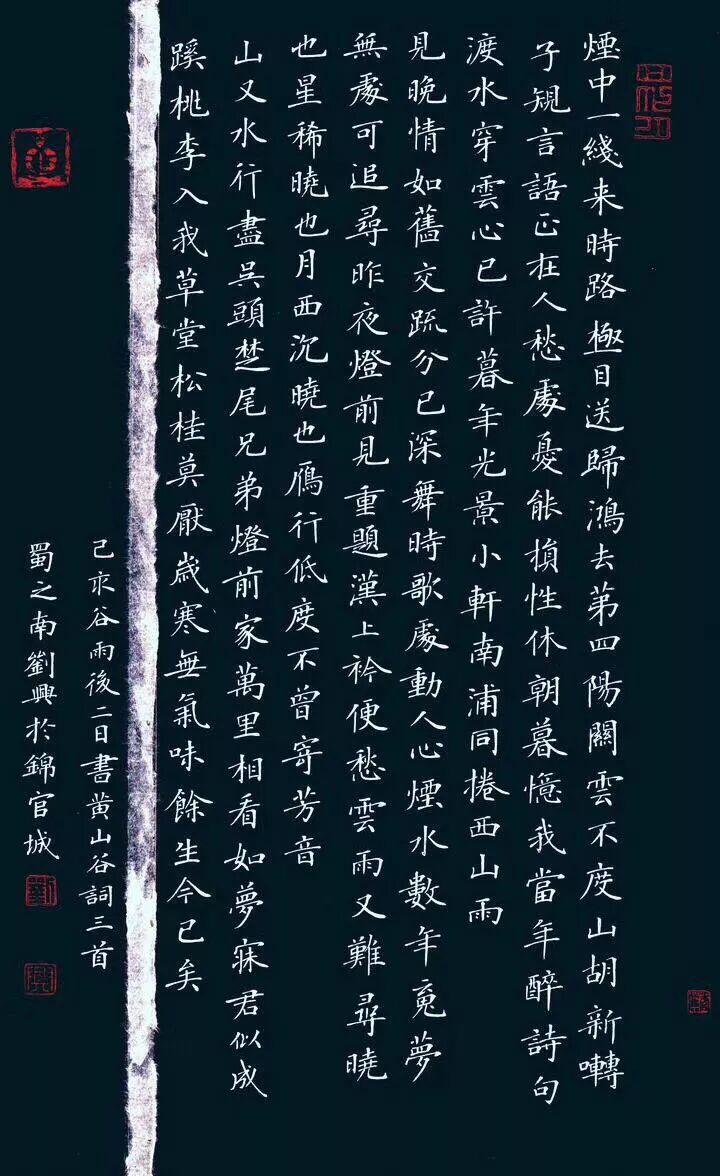 煙中一綫来時路極目送歸鴻去第四陽關雲不度山胡新囀
子規言語正在人愁處憂能損性休朝暮憶我當年醉詩句
渡水穿雲心已許暮年光景小軒南浦同捲西山雨
見晚情如舊交疏分已深舞時歌處動人心煙水數年䰟夢
無處可追尋昨夜燈前見重題漢上衿便愁雲雨又難尋曉
也星稀曉也月西沉曉也鴈行低度不曾寄芳音
山又水行盡吳頭楚尾兄弟燈前家萬里相看如夢寐君似成
蹊桃李入我草堂松桂莫厭歲寒無氣味餘生今已矣
己亥谷雨後二日書黄山谷詞三首
蜀之南劉興於錦官城